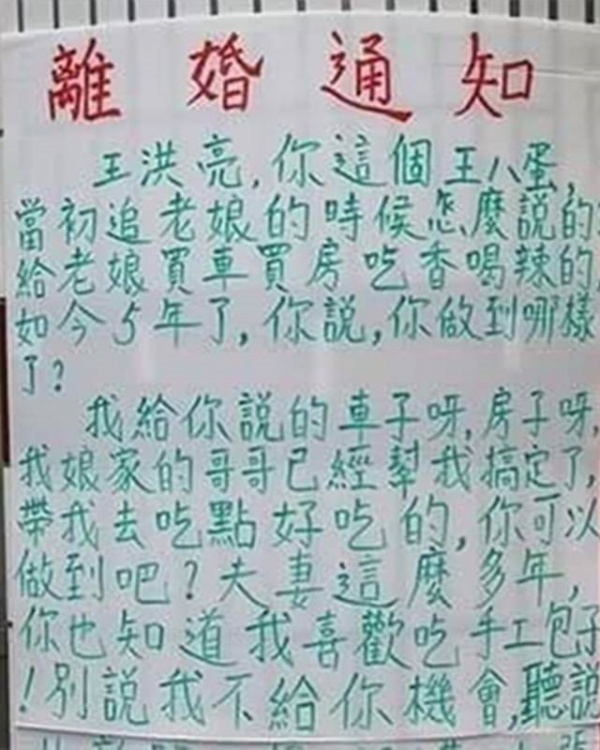 離婚通知
王洪亮,你這個王八蛋,
當初追老娘的時候怎麼說的
給老娘買車買房吃香喝辣的,
如今5年了,你說,你做到哪樣
了?
我給你說的車子呀,房子呀,
我娘家的哥哥已經幫我搞定了,
帶我去吃點好吃的,你可以
做到吧?夫妻這麼多年,
你也知道我喜歡吃手工包子
!別說我不給你機會,聽說